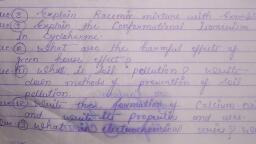 Explain Racemic mixture with
Explain the Conformational Isomerism
In Cyclohexane.
What are the harmful effects of
green house effect?
What is soil pollution? Write
down methods of prevention of soil
pollution.
Write the formation of Calcium
and write its properties and uses
What is electrochemical series?